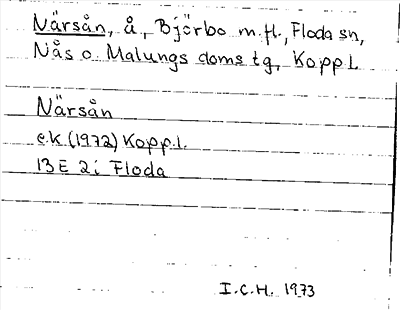 Närsån, å, Björbo m.fl., Floda sn,
Nås o. Malungs doms tg, Kopp.l.
Närsån
e.k. (1972) Kopp.l.
13E 2i Floda
I.C.H. 1973